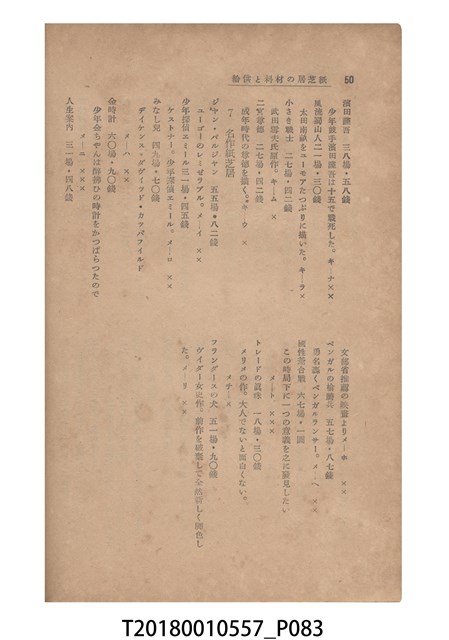 50 紙芝居の材料と供給
濱田謹吾 三八場・五八錢
少年鼓手濱田謹吾は十五で戰死した。キ—ナ××
風流蜀山人二一場・三〇錢
太田南畝をユーモアたつぷりに描いた。キ—ラ×
小さき戰士 二七場・四二錢
武田雪夫氏原作。キ—ム ×
二宮尊德 二七場・四二錢
成年時代の尊德を描く。キ—ウ ×
7 名作紙芝居
ジャン・バルジャン 五五場・八二錢
ユーゴーのレミゼラブル。メ—イ ××
少年探偵エミール三一場・四五錢
ケストナー。少年探偵エミール。メ—ロ ××
みなし兒 四九場・七〇錢
デイケンス・デヴイツド・カツパフイルド
メ—ハ ××
金時計 六〇場・九〇錢
少年金ちやんは師禪ひの時計をかつぱらつたので
メ—ニ ××
人生案內 三一場・四八錢
文部省推薦の映畫よりメ—ホ ××
ベンガルの槍騎兵 五七場・八七錢
勇名高くベンガルランサー。メ—ヘ ××
國性爺合戰 六七場・一圓
この時局下に一つの意義を之に發見したい
メ—ト ×××
トレードの眞珠 一八場・三〇錢
メリメの作。大人でないと面白くない。
メチ—×
フランダースの犬 五一場・九〇錢
ヴイダー女史作。前作を破棄して全然新しく脚色し
た。メ—リ ××
T20180010557_P083